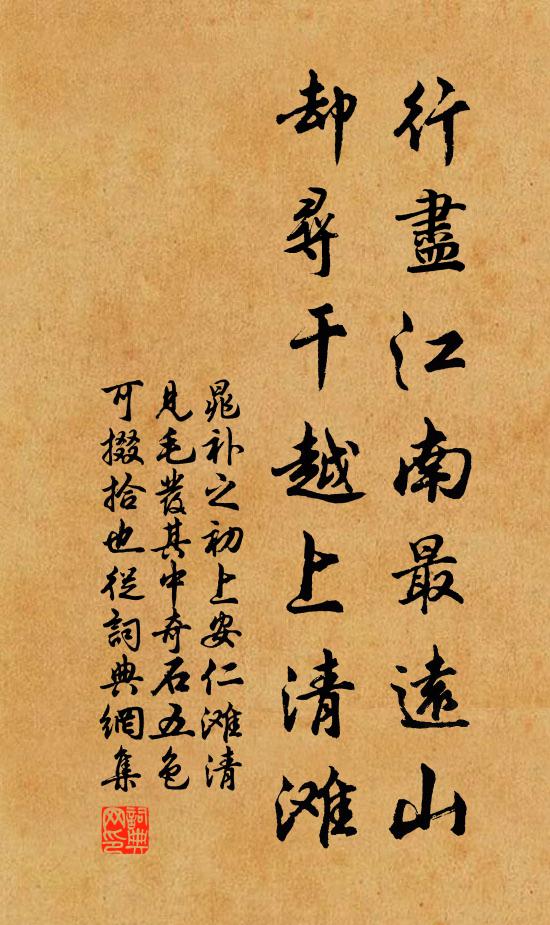 行盡江南最遠山
却尋干越上清滩
晁补之初上安仁滩清
見毛發其中奇石五色
可掇拾也從詞典網集
詞典网印